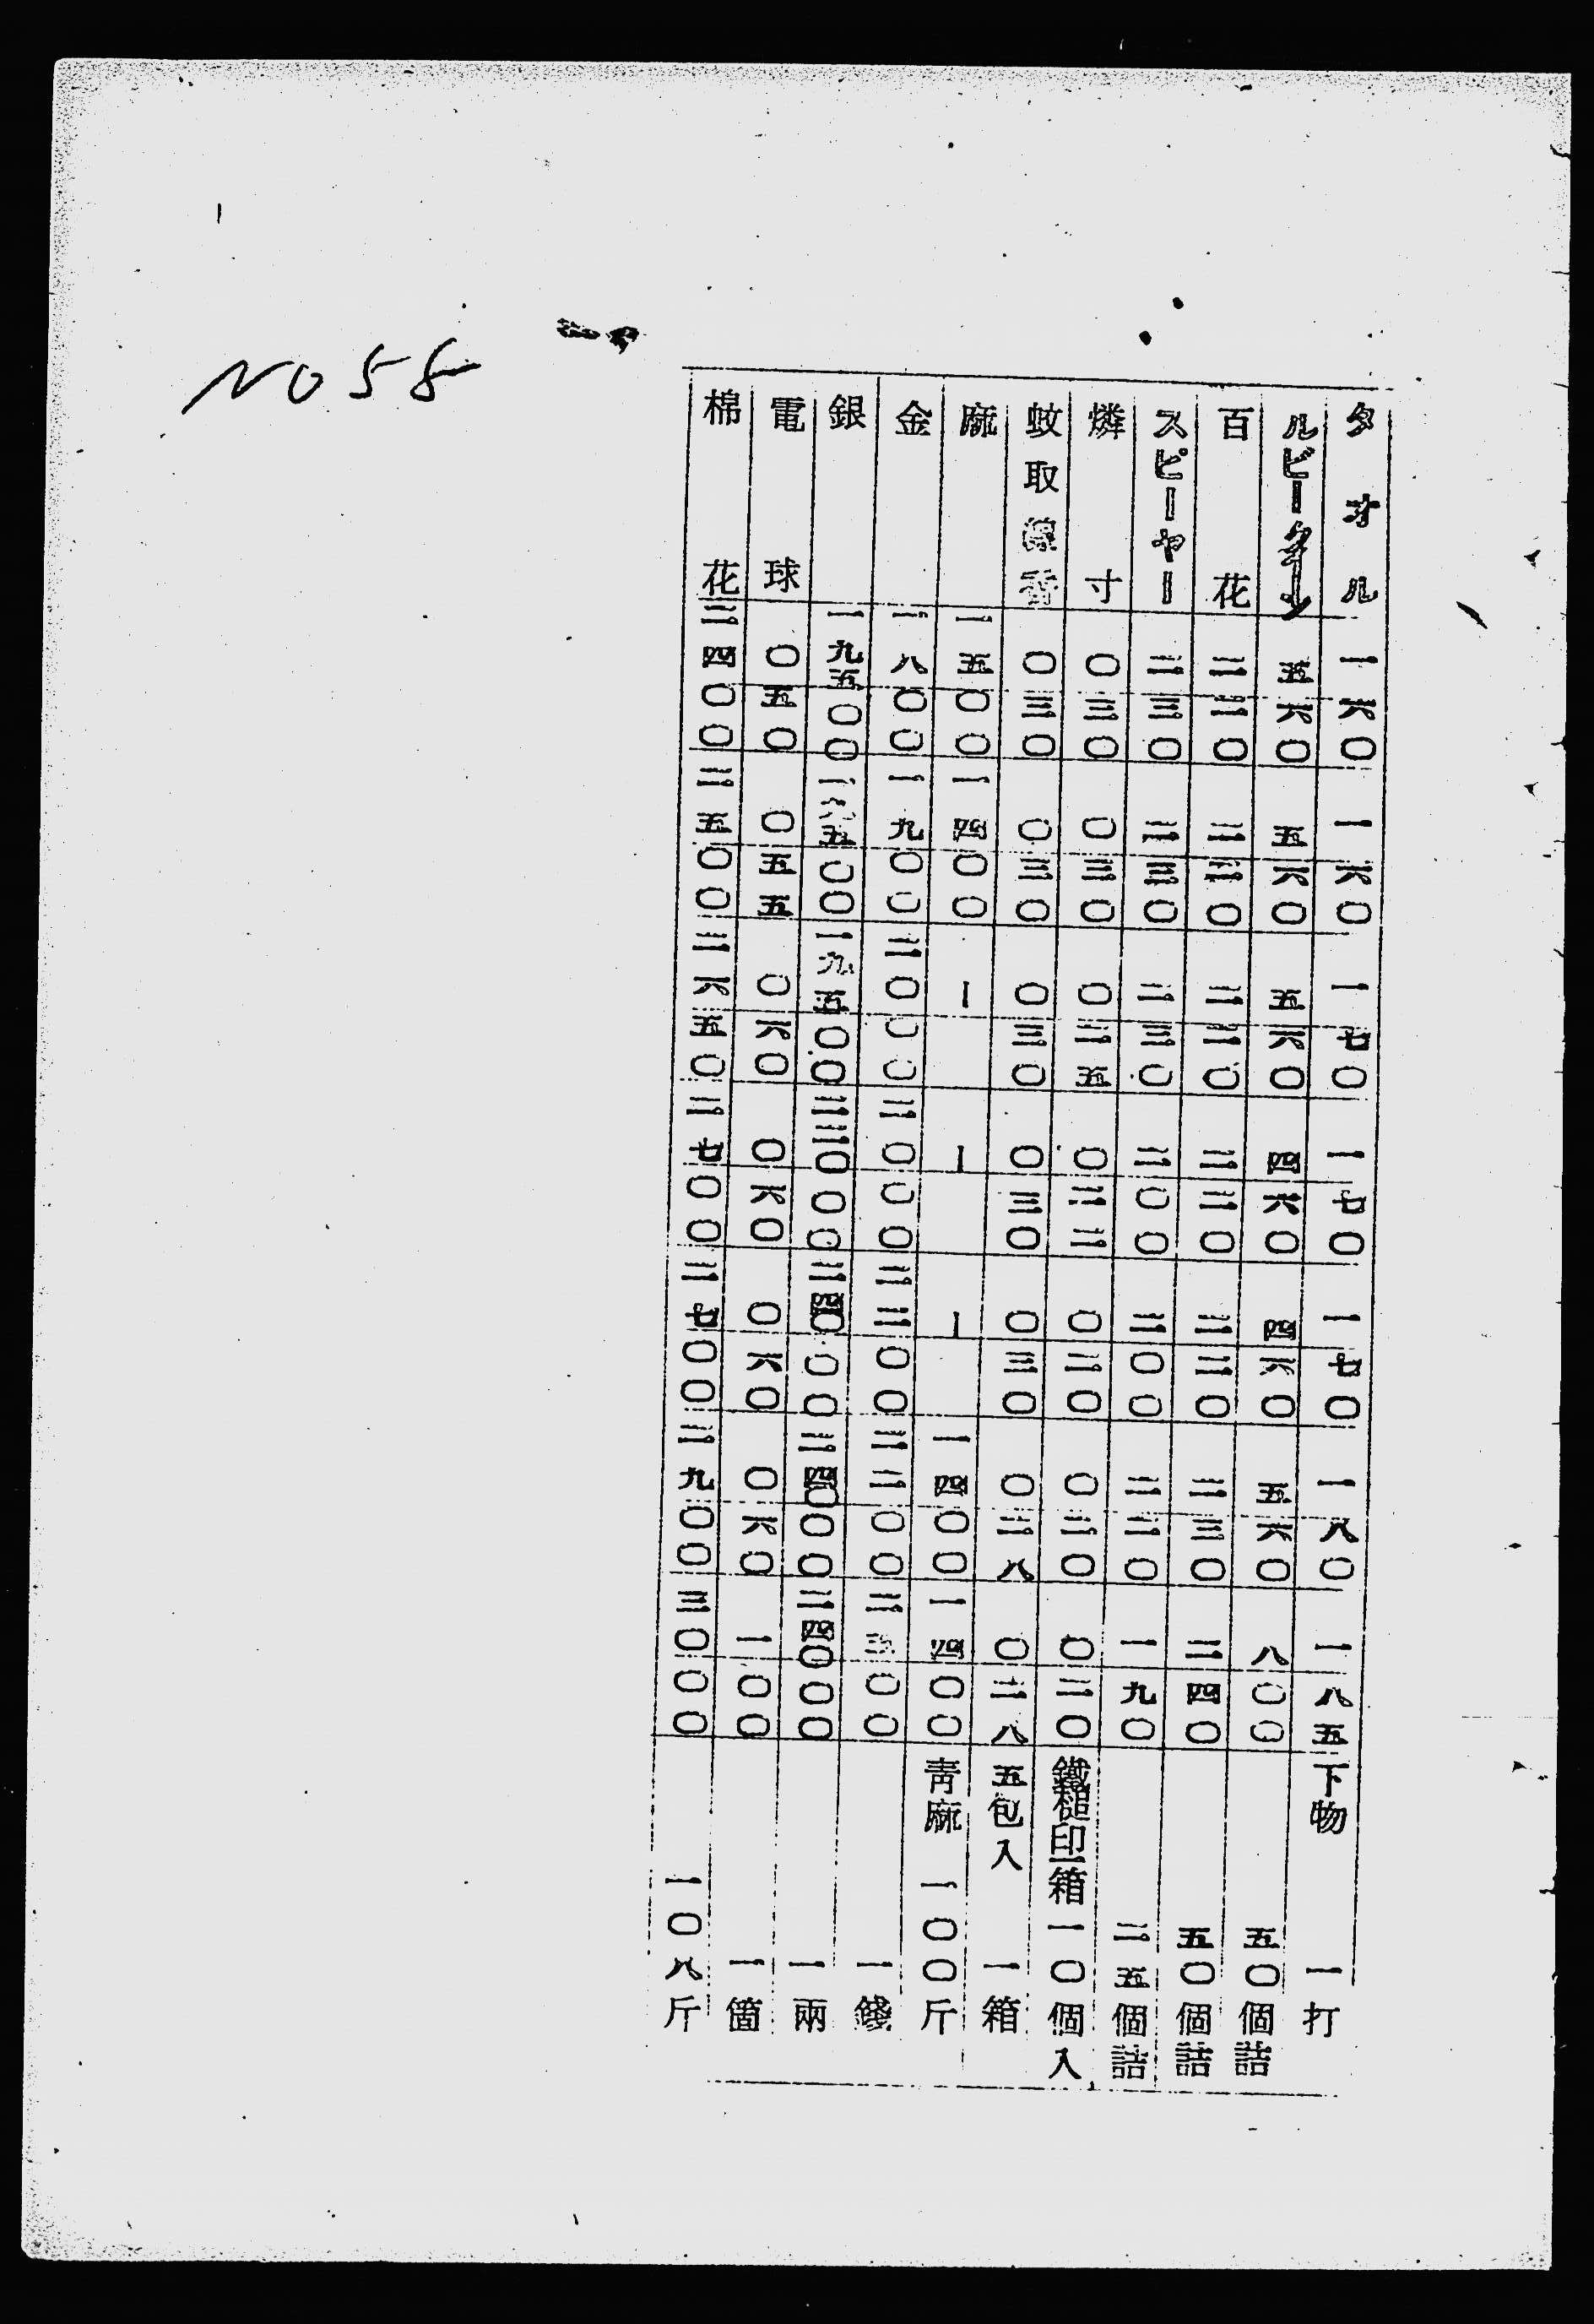 NO 58
タオル 一六〇 一六〇 一七〇 一七〇 一七〇 一八〇 一八五 下物 一打
ルビークイーン 五六〇 五六〇 五六〇 四六〇 四六〇 五六〇 八〇〇 五〇個詰
百花 二二〇 二二〇 二二〇 二二〇 二二〇 二三〇 二四〇 五〇個詰
スピーヤー 二三〇 二三〇 二三〇 二〇〇 二〇〇 二二〇 一九〇 二五個詰
燐寸 〇三〇 〇三〇 〇二五 〇二二 〇二〇 〇二〇 〇二〇 鐵槌印一箱一〇個入
蚊取線香 〇三〇 〇三〇 〇三〇 〇三〇 〇三〇 〇二八 〇二八 五包入 一箱
麻 一五〇〇 一四〇〇 ー ー ー 一四〇〇 一四〇〇 青麻 一〇〇斤
金 一八〇〇 一九〇〇 二〇〇〇 二〇〇〇 二二〇〇 二二〇〇 二三〇〇 一錢
銀 一九五〇〇 五〇〇 一九五〇〇 二二〇〇〇 二四〇〇〇 二四〇〇〇 二四〇〇〇 一兩
電球 〇五〇 〇五五 〇六〇 〇六〇 〇六〇 〇六〇 一〇〇 一箇
棉花 二四〇〇 二五〇〇 二六五〇 二七〇〇 二七〇〇 二九〇〇 三〇〇〇 一〇八斤